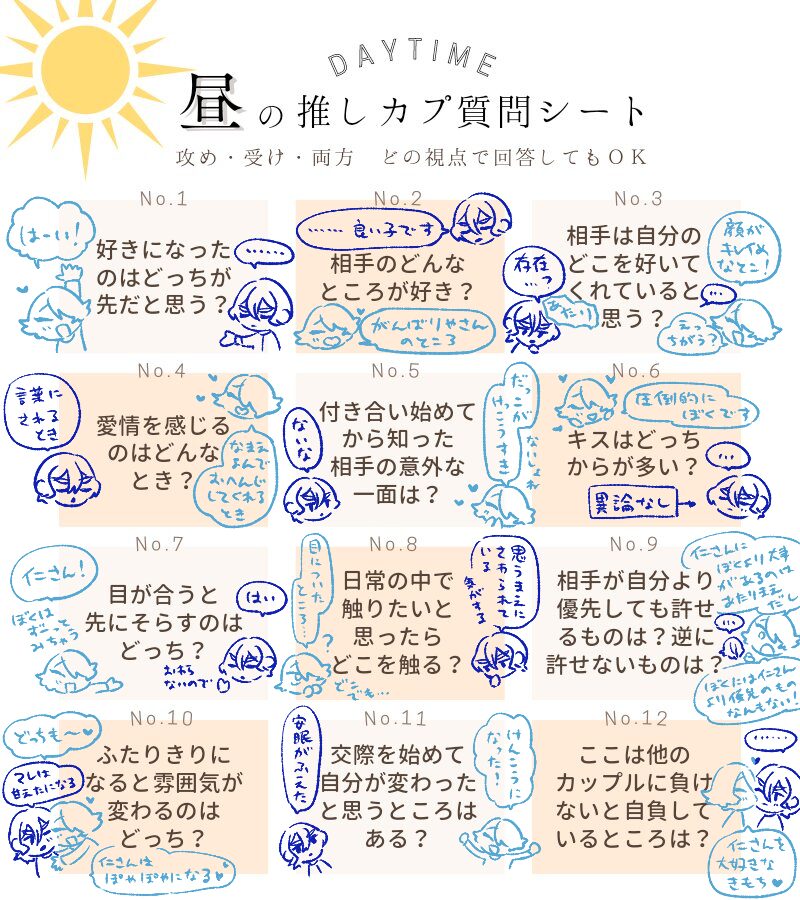 DAYTIME
昼の推しカプ質問シート
攻め・受け・両方　どの視点で回答してもＯＫ
No.1
はーい!
好きになった
のはどっちが
先だと思う？
......
No.2
...... 良い子です
相手のどんな
ところが好き？
がんばりやさん
のところ
No.3
相手は自分の
どこを好いて
くれていると
思う？
顔が
キレイめ
なとこ!
存在
...っ
...
あたり
えっ
ちがう?
No.4
言葉に
されるとき
愛情を感じる
のはどんな
とき？
なまえ
よんで
おへんじ
してくれる
とき
No.5
付き合い始めて
から知った
相手の意外な
一面は？
ないな
だっこが
けっこうすき
ないしょね
No.6
圧倒的に
ぼくです
キスはどっち
からが多い？
...
異論なし
No.7
仁さん!
目が合うと
先にそらすのは
どっち？
はい
ぼくは
ずーっと
みちゃう
おわら
ないので
No.8
目についた
ところ...
日常の中で
触りたいと
思ったら
どこを触る？
思うまえに
さわられて
いる
気がする
?
どこでも...
No.9
仁さんに
ぼくより大事
があるのは
あたりまえだし
相手が自分より
優先しても許せ
るものは？逆に
許せないものは？
...
ぼくには仁さん
より優先のもの
なんもない!
No.10
どっちも〜
ふたりきりに
なると雰囲気が
変わるのは
どっち？
マレは
甘えたになる
仁さんは
ぽやぽやになる
No.11
安眠がふえた
交際を始めて
自分が変わった
と思うところは
ある？
けんこうに
なった!
No.12
ここは他の
カップルに負け
ないと自負して
いるところは？
......
仁さんを
大好きな
きもち